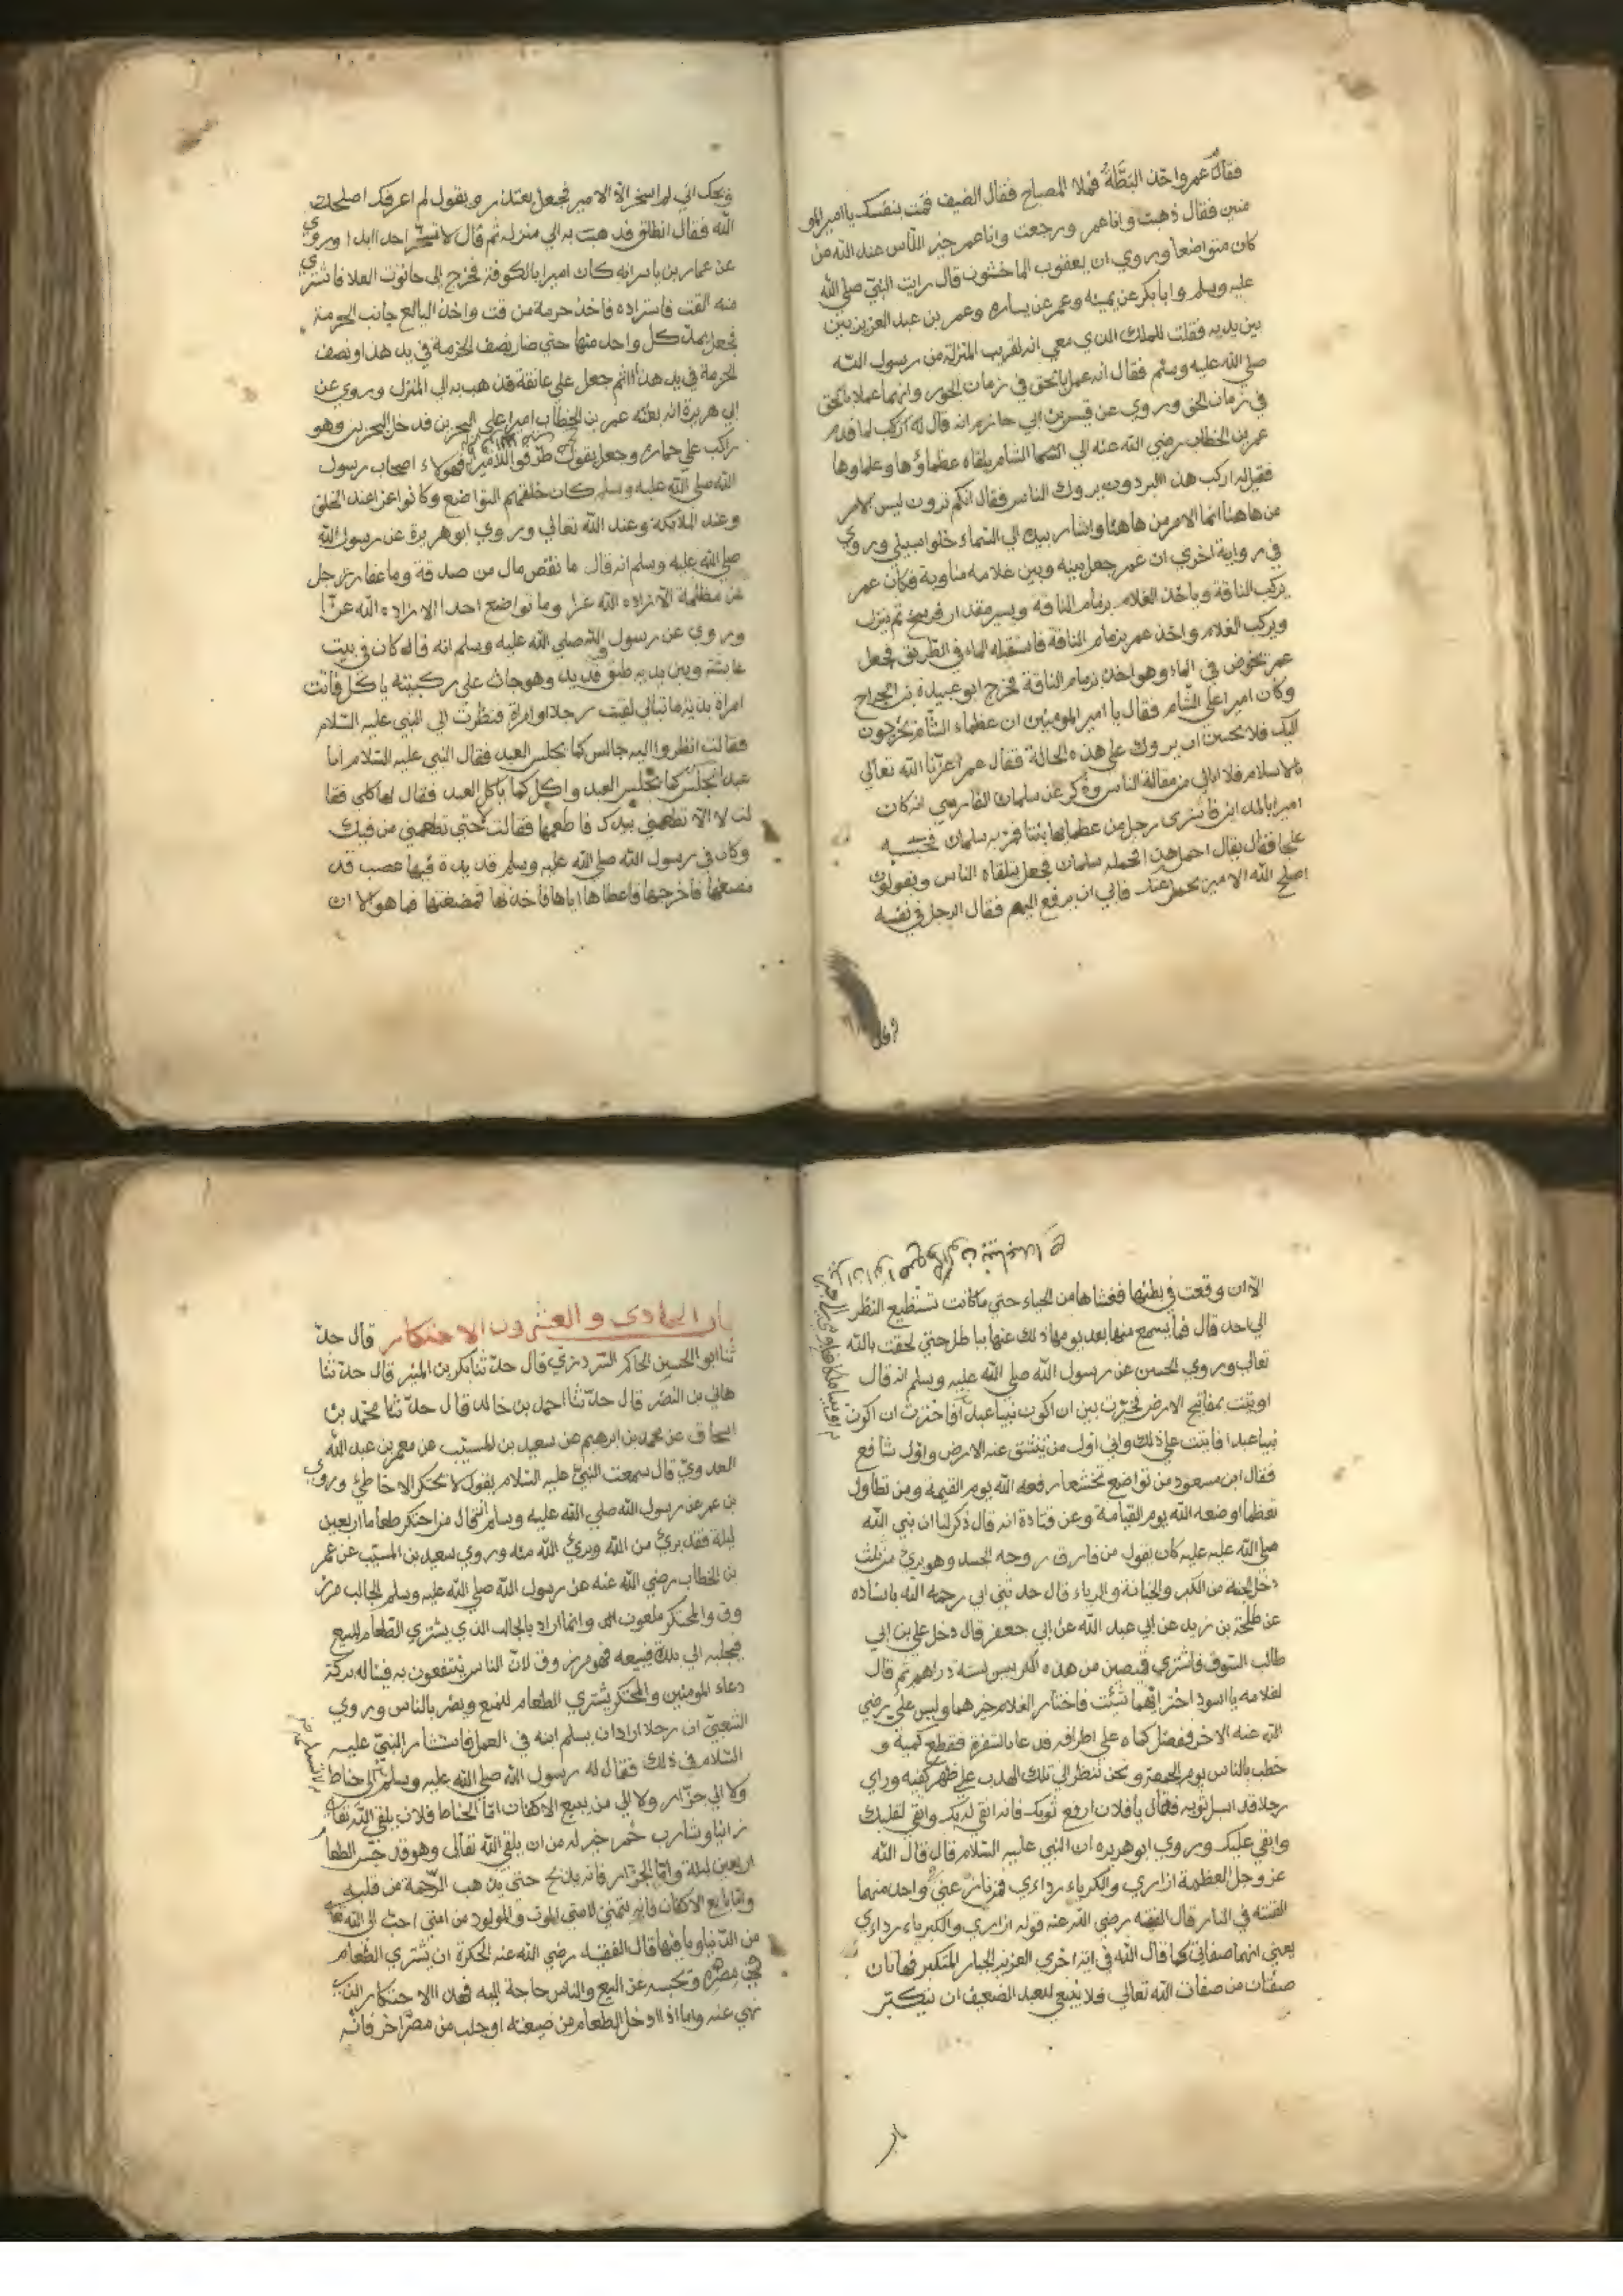 فقال عمر واخذ البطة فملا المصباح فقال الضيف قمت بنفسك يا امير المو
منين فقال ذهبت وانا عمر ورجعت وانا عمر خير الناس عند الله من
كان متواضعا وروي ان يعقوب الماخشون قال رايت النبي صلي الله
عليه وسلم وابا بكر عن يمينه وعمر عن يساره وعمر بن عبد العزيز بين
بين يديه فقلت للملك الذي معي انه لقريب المنزلة من رسول الله
صلي الله عليه وسلم فقال انه عمل بالحق في زمان الجور وانهما عملا بالحق
في زمان الحق وروي عن قيس بن ابي حازم انه قال لما قدم
عمر بن الخطاب رضي الله عنه الي الشام يلقاه عظماؤها وعلماوها
فقيل له اركب هذا البردون يروك الناس فقال انكم ترون ليس الامر
من هاهنا انما الامر من هاهنا واشار بيده الي السماء خلوا سبيلي وروي
في رواية اخري ان عمر جعل بينه وبين غلامه مناوبة فكان عمر
يركب الناقة وياخذ الغلام بزمام الناقة ويسير مقدار فرسخ ثم ينزل
ويركب الغلام واخذ عمر بزمام الناقة فاستقبله الماء في الطريق فجعل
عمر يخوض في الماء وهو اخذ بزمام الناقة فخرج ابو عبيدة بن الجراح
وكان اميرا علي الشام فقال يا امير المومنين ان عظماء الشام يخرجون
اليك فلا يحسن ان يروك علي هذه الحالة فقال عمر اعزنا الله تعالي
بالاسلام فلا ابالي من مقالة الناس وذكر عن سلمان الفارسي انه كان
اميرا بالمداين فاشترى رجل من عظمائها شيئا فمر به سلمان فحسبه
علجا فقال تعال احمل هذا فحمله سلمان فجعل يتلقاه الناس ويقولون
اصلح الله الامير نحمل عنك فابي ان يرفع اليهم فقال الرجل في نفسه
ويحك اني لم اسخر الا الامير فجعل يعتذر ويقول لم اعرفك اصلحك
الله فقال انطلق فذهبت به الي منزله ثم قال لا تسخر احدا ابدا وروي
عن عمار بن ياسر انه كان اميرا بالكوفة فخرج الى حانوت العلاف اشتري
منه القت فاستزاده فاخذ حزمة من قت واخذ البائع جانب الحزمة
فجعل يمد كل واحد منها حتي صار نصف الحزمة في يد هذا ونصف
الحزمة في يد هذا ثم جعل علي عاتقه فذهب به الي المنزل وروي عن
ابي هريرة انه بعثه عمر بن الخطاب اميرا علي البحرين فدخل البحرين وهو
راكب علي حماره وجعل يقول طرقوا للامير فهولاء اصحاب رسول
الله صلي الله عليه وسلم كان خلقهم التواضع وكانوا اعز عند الخلق
وعند الملايكة وعند الله تعالي وروي ابو هريرة عن رسول الله
صلي الله عليه وسلم انه قال ما نقص مال من صدقة وما عفا رجل
عن مظلمة الا زاده الله عزا وما تواضع احدا الا زاده الله عزا
وروي عن رسول الله صلي الله عليه وسلم انه قال كان في بيت
عايشة وبين يديه طبق قديد وهو جاث علي ركبتيه ياكل فاتت
امراة بذية ما تبالي لقيت رجلا او امراة فنظرت الي النبي عليه السلام
فقالت انظروا اليه جالس كما يجلس العبد فقال النبي عليه السلام انا
عبد اجلس كما يجلس العبد واكل كما ياكل العبد فقال لها كلي فقا
لت لا الا تطعمني بيدك فاطعمها فقالت حتي تطعمني من فيك
وكان في رسول الله صلي الله عليه وسلم قديدة فيها عصب قد
مضغها فاخرجها فاعطاها اياها فاخذتها فمضغتها فما هو الا ان
الا ان وقعت في بطنها فغشاها من الحياء حتي ما كانت تستطيع النظر
الي احد قال فما يسمع منها بعد يومها ذلك عنها بباطل حتي لحقت بالله
تعالي وروي الحسن عن رسول الله صلي الله عليه وسلم انه قال
اوتيت بمفاتيح الارض فخيرت بين ان اكون نبيا عبدا فاخترت ان اكون
نبيا عبدا فاتيت علي ذلك واني اول من ينشق عنه الارض واول شافع
فقال ابن مسعود من تواضع تخشعا رفعه الله يوم القيمة ومن تطاول
تعظما وضعه الله يوم القيامة وعن قتادة انه قال ذكر لنا ان نبي الله
صلي الله عليه عليه كان يقول من فارق روحه الجسد وهو بري من ثلث
دخل الجنة من الكبر والخيانة والرياء قال حدثني ابي رحمه الله باسناده
عن طلحة بن زيد عن ابي عبد الله عن ابي جعفر قال دخل علي بن ابي
طالب السوق فاشتري قميصين من هذه الكرابيس بستة دراهم ثم قال
لغلامه يا اسود اختر ايهما شئت فاختار الغلام خيرهما ولبس علي رضي
الله عنه الاخر ففضل كماه علي اطرافه فدعا بالشفرة فقطع كميه و
خطب بالناس يوم الجمعة ونحن ننظر الي تلك الهدب علي ظهر كفيه وراي
رجلا قد اسبل ثوبه فقال يا فلان ارفع ثوبك فانه انقي لثوبك واتقي لقلبك
وابقي عليك وروي ابو هريرة ان النبي عليه السلام قال قال الله
عز وجل العظمة ازاري والكبرياء رداءي فمن نازعني واحد منهما
القيته في النار قال الفقيه رضي الله عنه قوله ازاري والكبرياء رداءي
يعني انهما صفاتي كما قال الله في اية اخري العزيز الجبار المتكبر فهاتان
صفتان من صفات الله تعالي فلا ينبغي للعبد الضعيف ان يتكبر
باب
باب الحادي والعشرون الاحتكار قال حد
ثنا ابو الحسين الحاكم السردري قال حدثنا بكر بن المنير قال حدثنا
هاني بن النضر قال حدثنا احمد بن خالد قال حدثنا محمد بن
اسحاق عن محمد بن ابرهيم عن سعيد بن المسيب عن معمر بن عبد الله
العدوي قال سمعت النبي عليه السلام يقول لا يحتكر الا خاطئ وروي
بن عمر عن رسول الله صلي الله عليه وسلم انه قال من احتكر طعاما اربعين
ليلة فقد بري من الله وبري الله منه وروي سعيد بن المسيب عن عمر
بن الخطاب رضي الله عنه عن رسول الله صلي الله عليه وسلم الجالب مرز
وق والمحتكر ملعون وانما اراد بالجالب الذي يشتري الطعام للبيع
فيجلبه الي بلده فيبيعه فهو مرزوق لان الناس ينتفعون به فيناله بركة
دعاء المومنين والمحتكر يشتري الطعام للمنع ويضر بالناس وروي
الشعبي ان رجلا اراد ان يسلم ابنه في العمل فاستشار النبي عليه
السلام في ذلك فقال له رسول الله صلي الله عليه وسلم الي حناط
ولا الي جزار ولا الي من يبيع الاكفان اما الحناط فلان يلقي الله تعالي
زانيا وشارب خمر خير له من ان يلقي الله تعالي وهو قد حبس الطعام
اربعين ليلة واما الجزار فانه يذبح حتي يذهب الرحمة من قلبه
واما بايع الاكفان فانه يتمني لامتي الموت والمولود من امتي احب الي الله
من الدنيا وما فيها قال الفقيه رضي الله عنه الحكرة ان يشتري الطعام
في مصره وتحبسه عن البيع والناس حاجة اليه فهذا الاحتكار الذي
نهي عنه واما اذا دخل الطعام من ضيعته او جلب من مصر اخر فانه